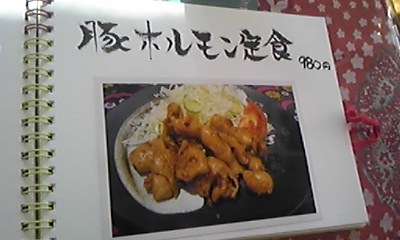 豚ホルモン定食
980円